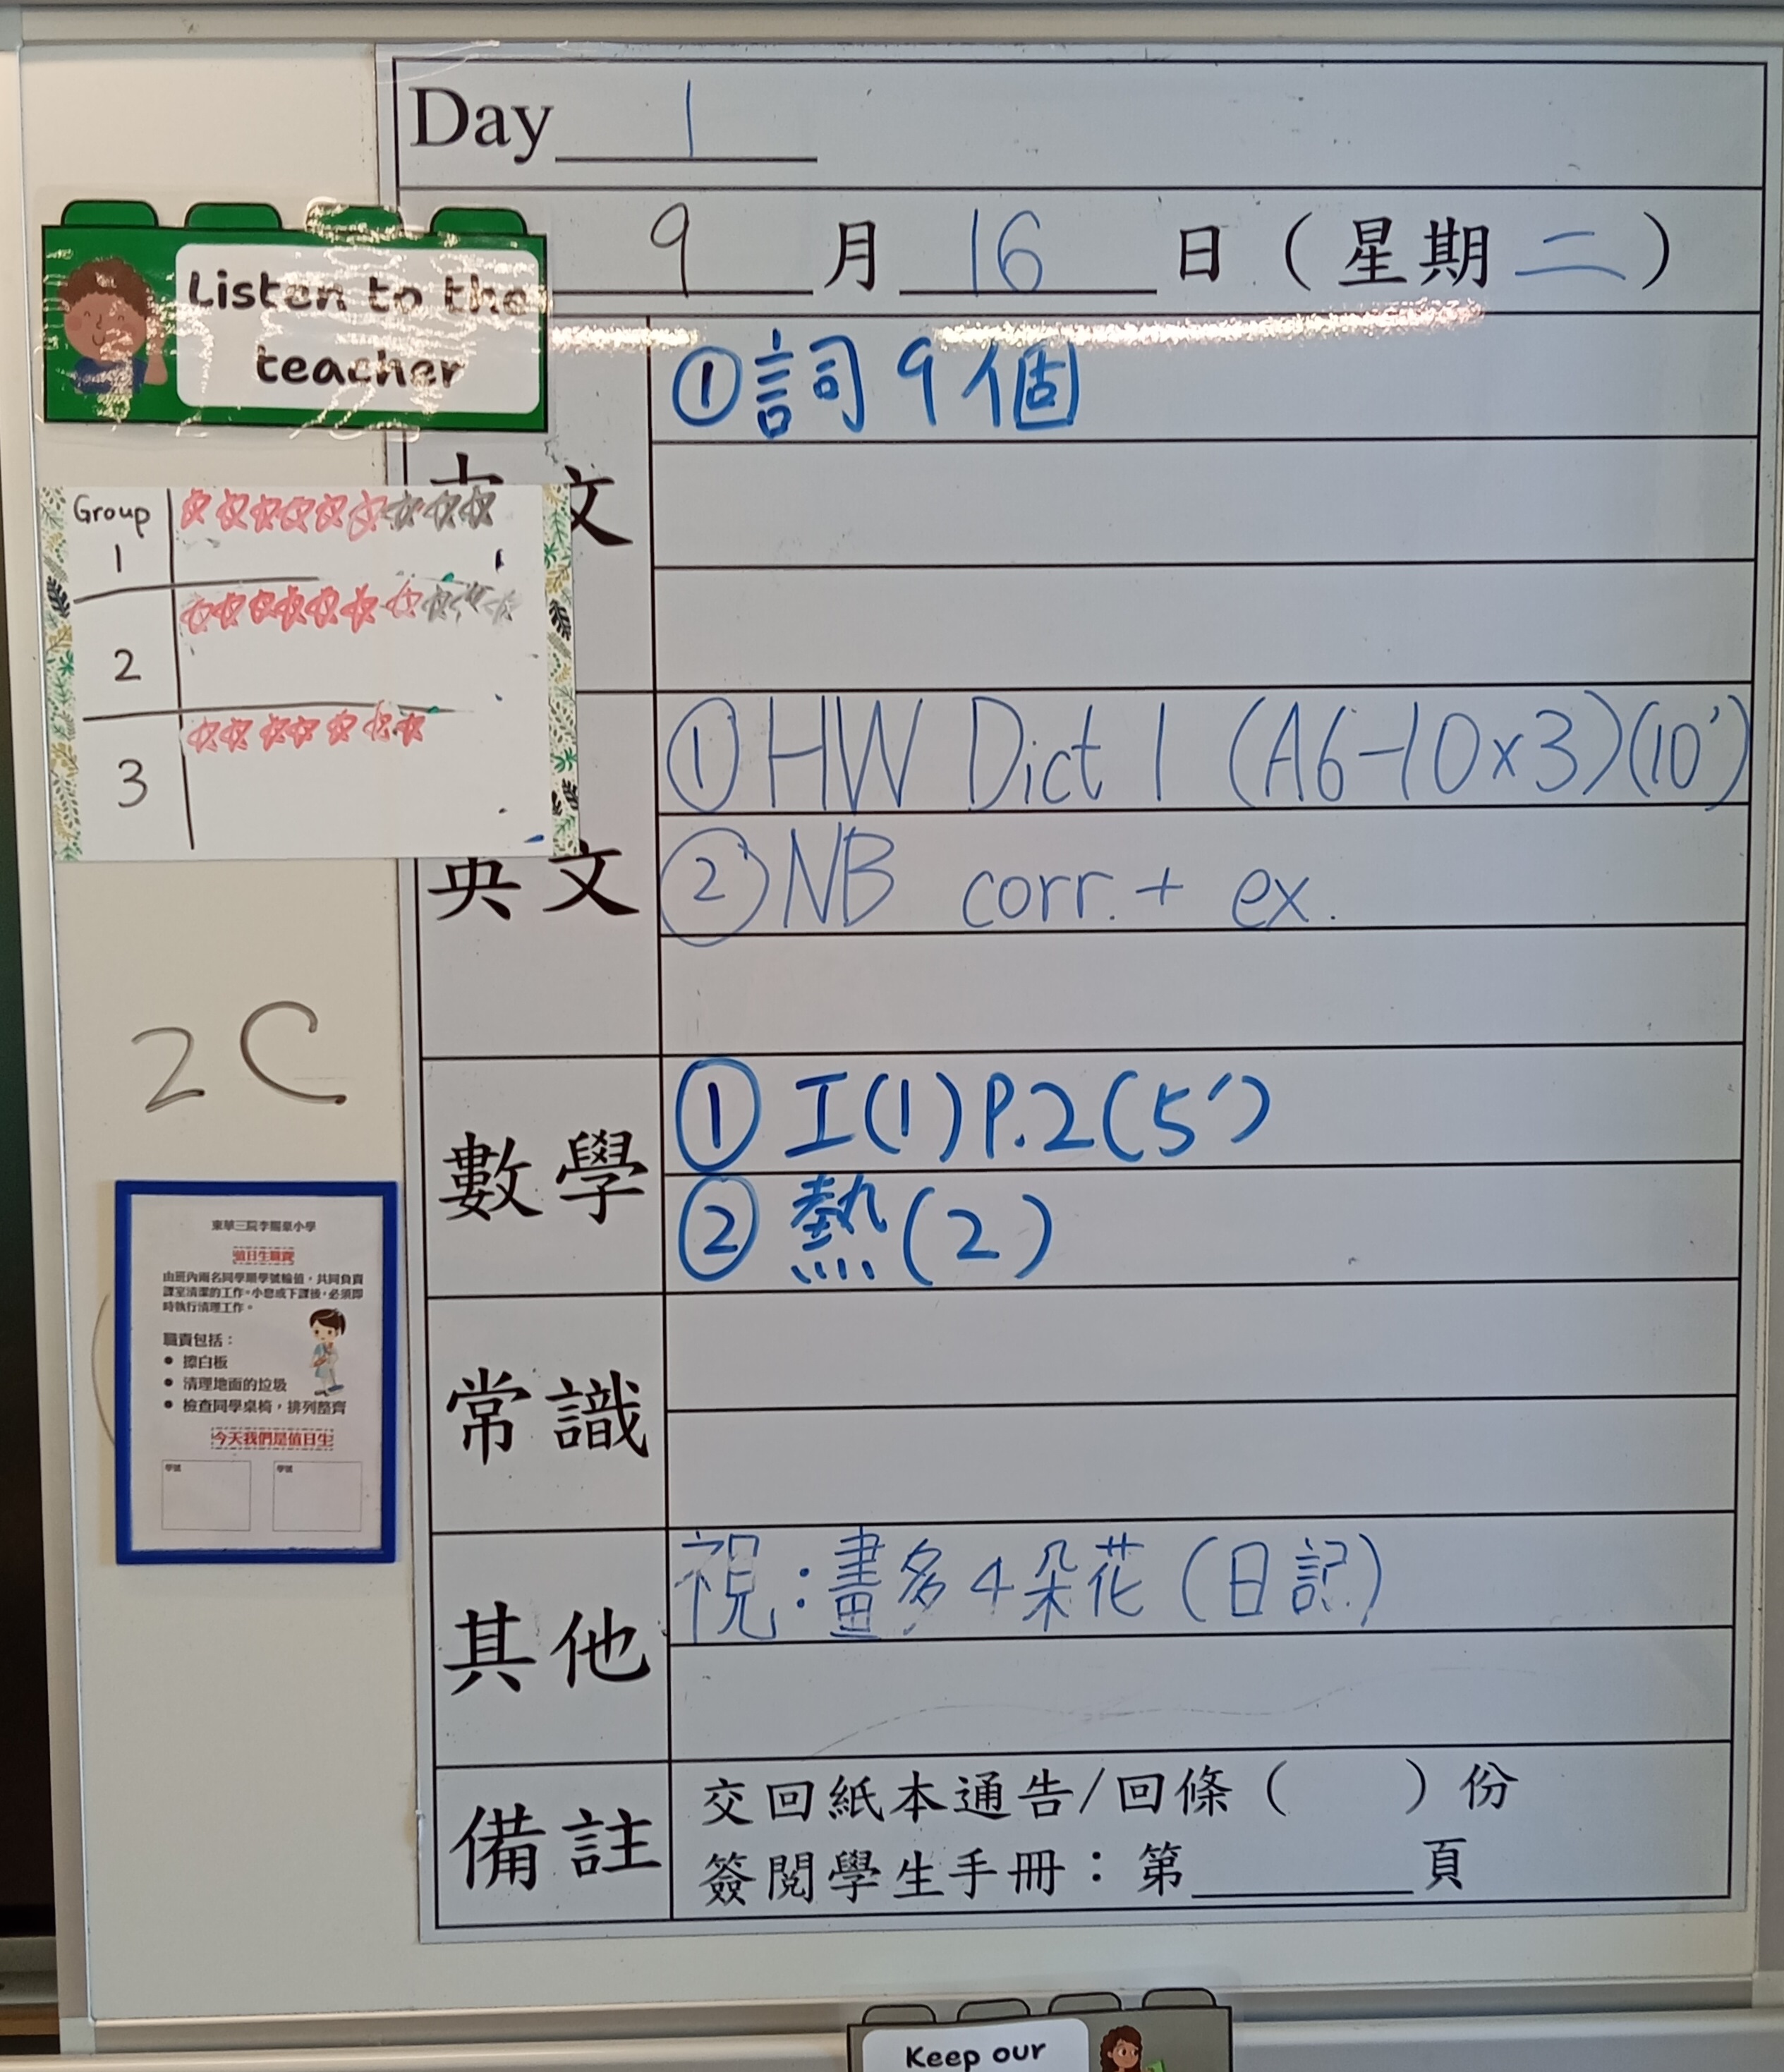 Day 1
9 月 16 日 (星期 二)
Listen to the
teacher
① 詞 9 個
文
Group
1
2
3
英文
① HW Dict 1 (A6-10x3)(10')
② NB corr. + ex.
2C
數學
① I(1) P.2 (5')
② 熱(2)
東華三院李賜豪小學
值日生職責
由班內兩名同學順學號輪值，共同負責
課室清潔的工作。小息或下課後，必須即
時執行清理工作。
職責包括：
● 擦白板
● 清理地面的垃圾
● 檢查同學桌椅，排列整齊
今天我們是值日生
學號
學號
常識
其他
視：畫多4朵花 (日記)
備註
交回紙本通告/回條 ( ) 份
簽閱學生手冊：第______頁
Keep our